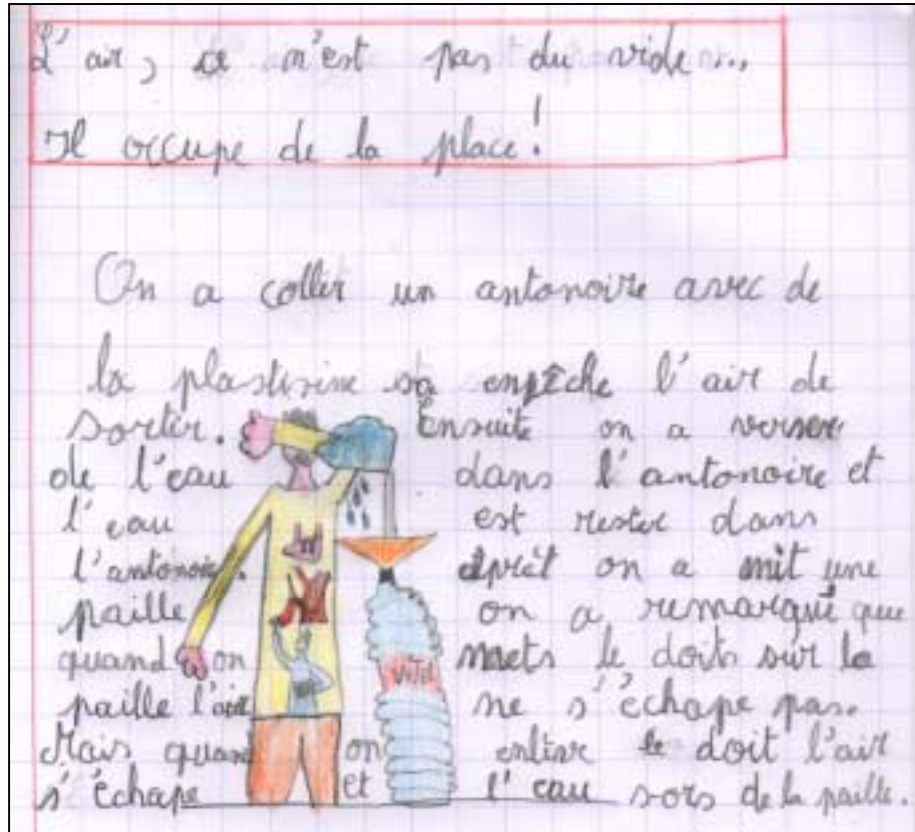 L'air, ce n'est pas du vide...
Il occupe de la place!
On a coller un antonoire avec de
la plastisine sa enpêche l'air de
sortir. Ensuite on a verser
de l'eau dans l'antonoire et
l'eau est rester dans
l'antonoir. Aprèt on a mit une
paille on a remarqué que
quand on mets le doits sur la
paille l'air ne s'échape pas.
Mais quand on enlève le doit l'air
s'échape et l'eau sors de la paille.
Vitel